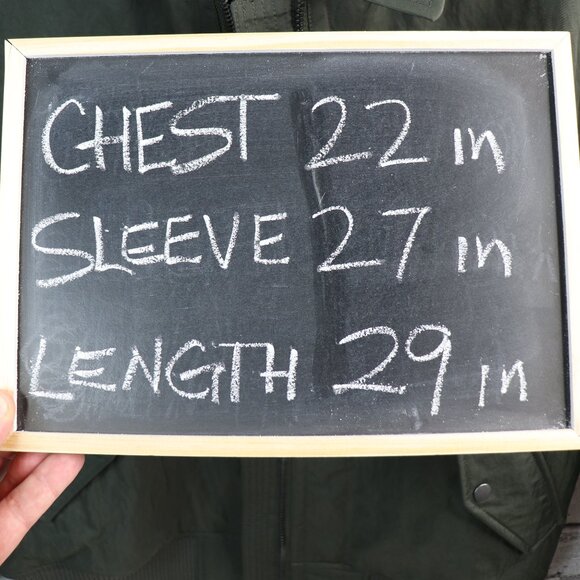 CHEST 22 in
SLEEVE 27 in
LENGTH 29 in